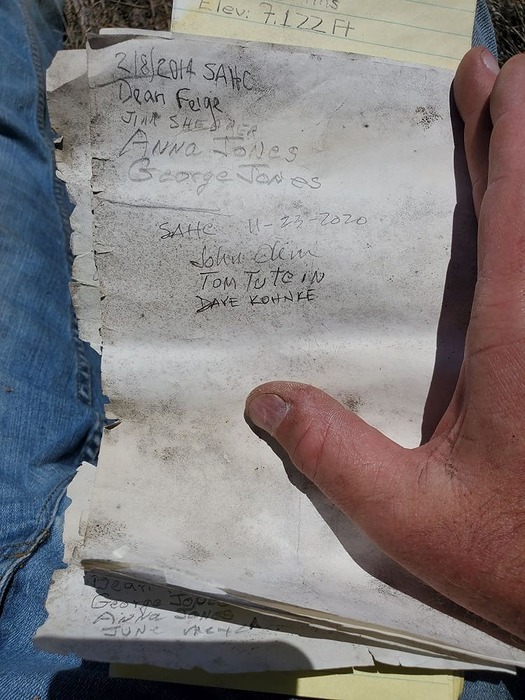 Elev: 7,122 Ft
3/8/2014 SAHC
Dean Feige
JIM
Anna Jones
George Jones
SAHC 11-23-2020
John
TOM TUTEIN
DAVE KOHNKE
Dean
George Jon
Anna Jones
JUNE